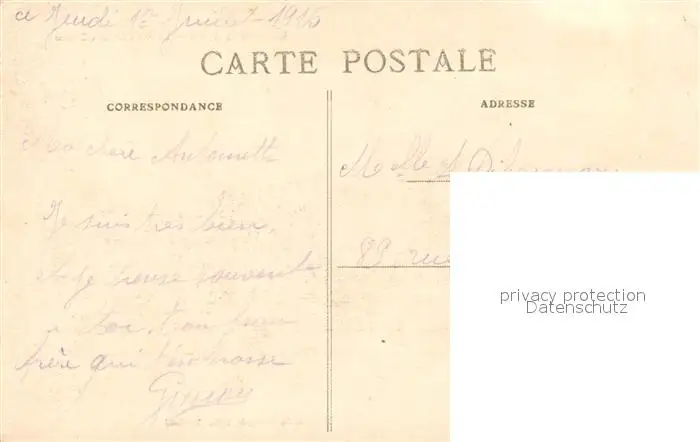 ce Jeudi 1er Juillet 1915
CARTE POSTALE
CORRESPONDANCE
ADRESSE
Ma chère Antoinette
Melle A
Je suis très bien,
et je pense souvent
88 rue
à toi, ton
frère qui t'embrasse
privacy protection
Datenschutz